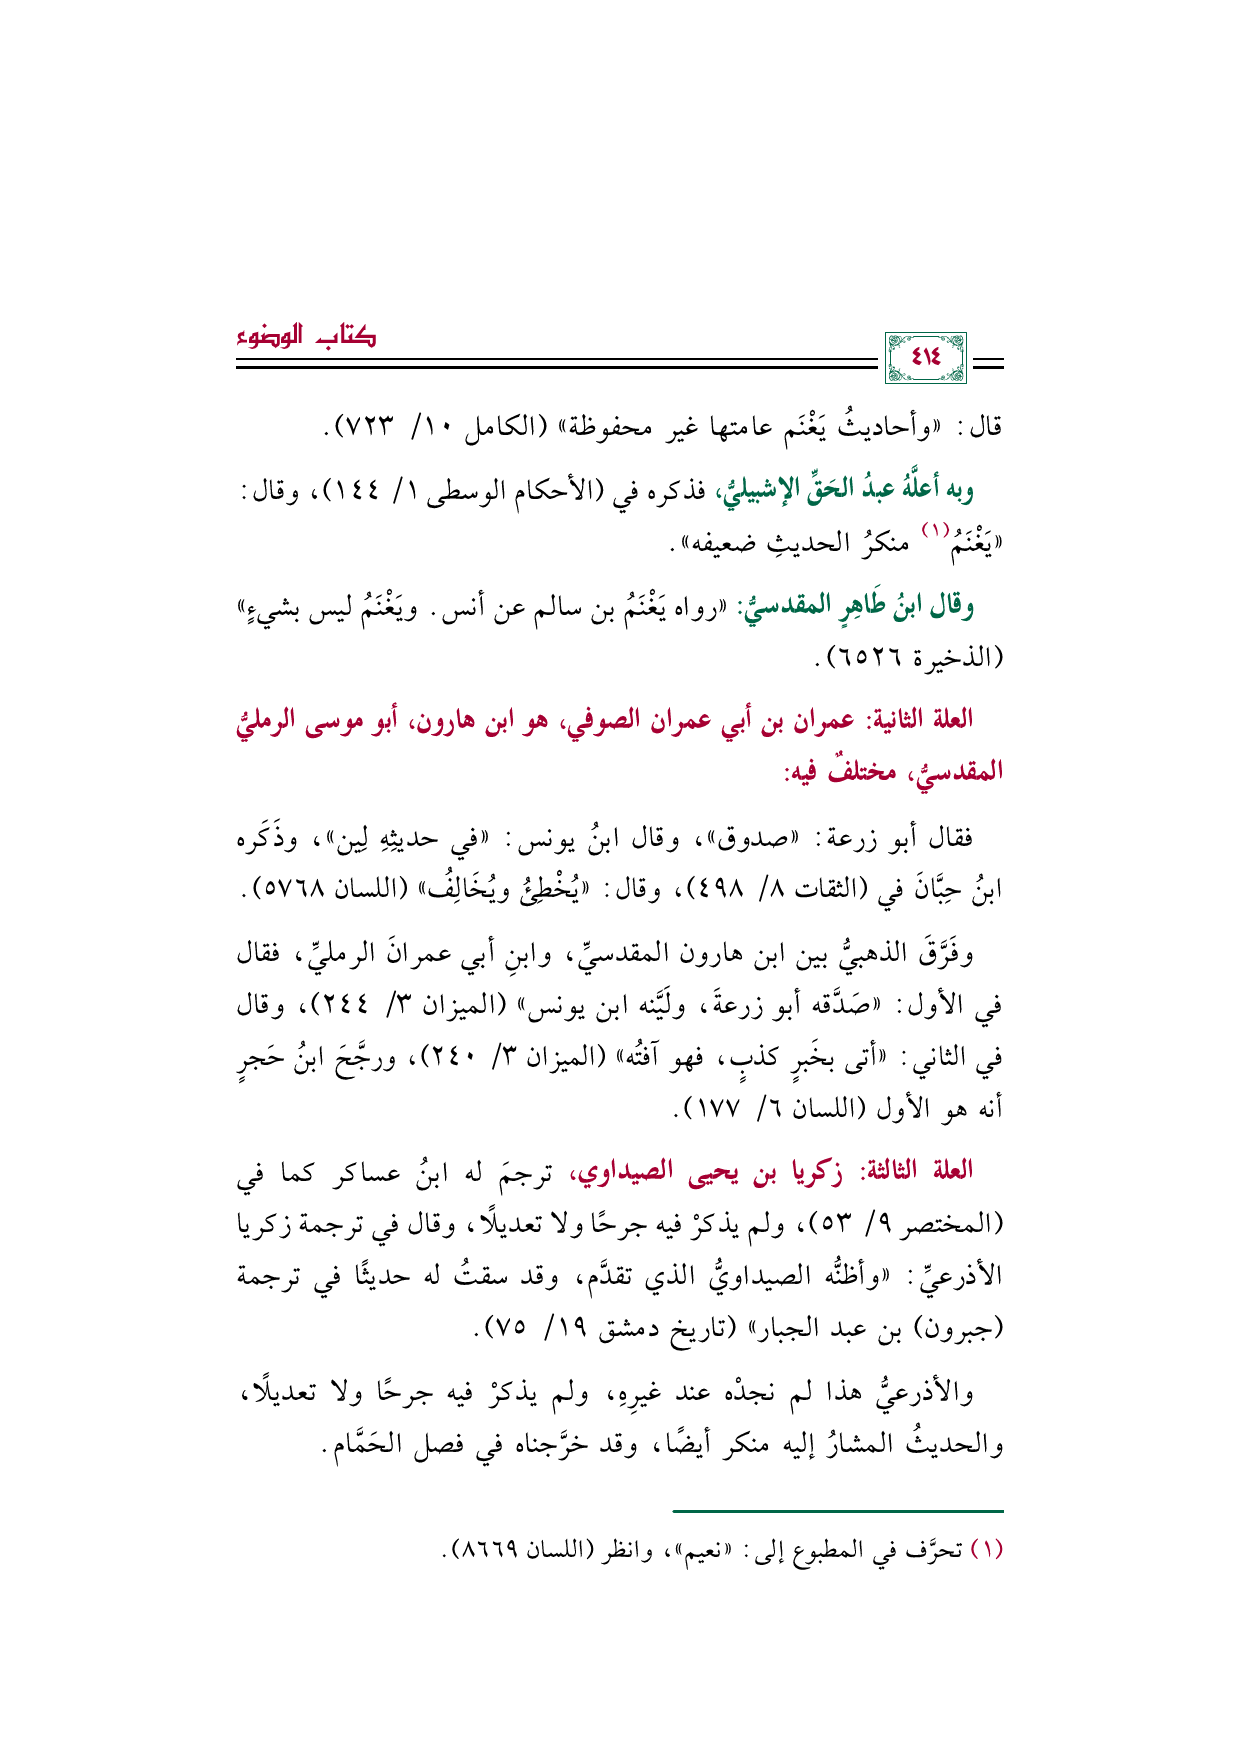 كتاب الوضوء
٤١٤
قال: «وأحاديثُ يَغْنَم عامتها غير محفوظة» (الكامل ١٠/ ٧٢٣).
وبه أعلَّهُ عبدُ الحَقِّ الإشبيليُّ، فذكره في (الأحكام الوسطى ١/ ١٤٤)، وقال:
«يَغْنَمُ(١) منكرُ الحديثِ ضعيفه».
وقال ابنُ طَاهِرٍ المقدسيُّ: «رواه يَغْنَمُ بن سالم عن أنس. ويَغْنَمُ ليس بشيءٍ»
(الذخيرة ٦٥٢٦).
العلة الثانية: عمران بن أبي عمران الصوفي، هو ابن هارون، أبو موسى الرمليُّ
المقدسيُّ، مختلفٌ فيه:
فقال أبو زرعة: «صدوق»، وقال ابنُ يونس: «في حديثِهِ لِين»، وذَكَره
ابنُ حِبَّانَ في (الثقات ٨/ ٤٩٨)، وقال: «يُخْطِئُ ويُخَالِفُ» (اللسان ٥٧٦٨).
وفَرَّقَ الذهبيُّ بين ابن هارون المقدسيِّ، وابنِ أبي عمرانَ الرمليِّ، فقال
في الأول: «صَدَّقه أبو زرعةَ، ولَيَّنه ابن يونس» (الميزان ٣/ ٢٤٤)، وقال
في الثاني: «أتى بخَبرٍ كذبٍ، فهو آفتُه» (الميزان ٣/ ٢٤٠)، ورجَّحَ ابنُ حَجرٍ
أنه هو الأول (اللسان ٦/ ١٧٧).
العلة الثالثة: زكريا بن يحيى الصيداوي، ترجمَ له ابنُ عساكر كما في
(المختصر ٩/ ٥٣)، ولم يذكرْ فيه جرحًا ولا تعديلًا، وقال في ترجمة زكريا
الأذرعيِّ: «وأظنُّه الصيداويُّ الذي تقدَّم، وقد سقتُ له حديثًا في ترجمة
(جبرون) بن عبد الجبار» (تاريخ دمشق ١٩/ ٧٥).
والأذرعيُّ هذا لم نجدْه عند غيرِهِ، ولم يذكرْ فيه جرحًا ولا تعديلًا،
والحديثُ المشارُ إليه منكر أيضًا، وقد خرَّجناه في فصل الحَمَّام.
(١) تحرَّف في المطبوع إلى: «نعيم»، وانظر (اللسان ٨٦٦٩).